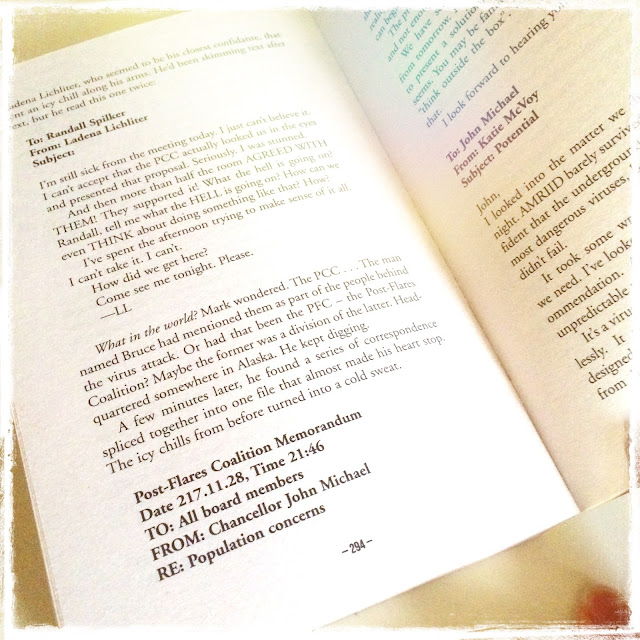 adena Lichliter, who seemed to be his closest confidante, that
ent an icy chill along his arms. He'd been skimming text after
ext, but he read this one twice:
To: Randall Spilker
From: Ladena Lichliter
Subject:
I'm still sick from the meeting today. I just can't believe it.
I can't accept that the PCC actually looked us in the eyes
and presented that proposal. Seriously. I was stunned.
And then more than half the room AGREED WITH
THEM! They supported it! What the hell is going on?
Randall, tell me what the HELL is going on? How can we
even THINK about doing something like that? How?
I've spent the afternoon trying to make sense of it all.
I can't take it. I can't.
How did we get here?
Come see me tonight. Please.
—LL
What in the world? Mark wondered. The PCC . . . The man
named Bruce had mentioned them as part of the people behind
the virus attack. Or had that been the PFC – the Post-Flares
Coalition? Maybe the former was a division of the latter. Head-
quartered somewhere in Alaska. He kept digging.
A few minutes later, he found a series of correspondence
spliced together into one file that almost made his heart stop.
The icy chills from before turned into a cold sweat.
Post-Flares Coalition Memorandum
Date 217.11.28, Time 21:46
TO: All board members
FROM: Chancellor John Michael
RE: Population concerns
–294–
can beg
The pr
and not enou
We have
from tomorrow,
to present a solution
seems. You may be fam
"think outside the box"
that.
I look forward to hearing you
To: John Michael
From: Katie McVoy
Subject: Potential
John,
I looked into the matter we
night. AMRIID barely surviv
fident that the underground
most dangerous viruses,
didn't fail.
It took some wo
we need. I've look
ommendation.
unpredictable
It's a viru
lessly. It
designed
from